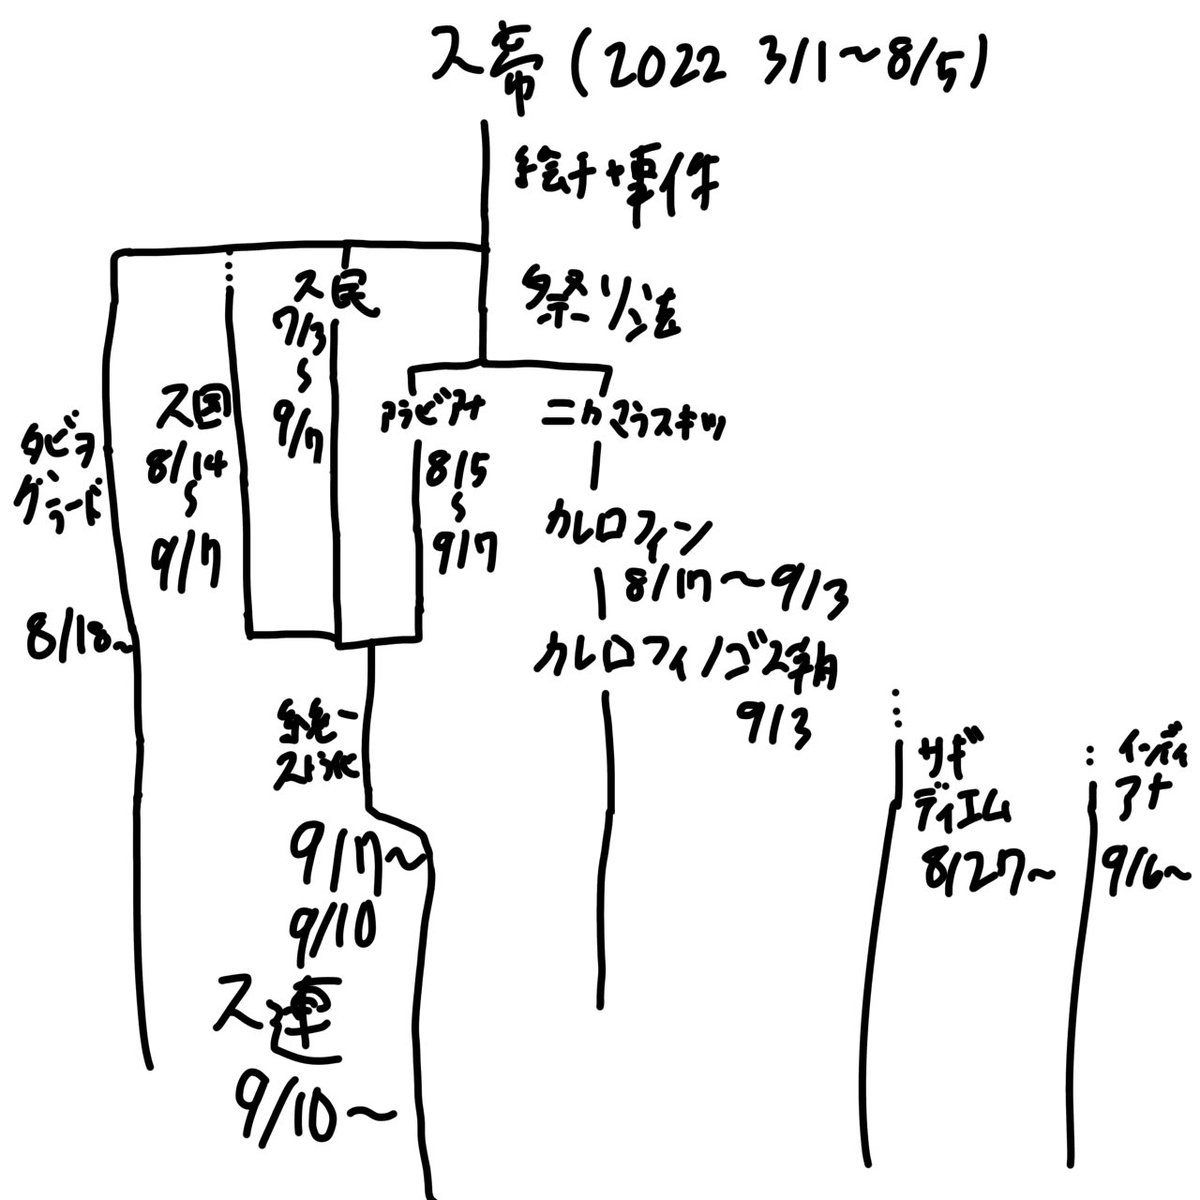 ス帝(2022 3/1〜8/5)
絵チャ事件
祭り法
ス民
7/3
〜
9/7
ス国
8/14
〜
9/7
タビヲ
グラード
8/18〜
アラビアナ
8/5
〜
9/7
ニカマラスキツ
カレロフィン
8/17〜9/3
カレロフィノゴスラ朝
9/3
統一
9/7〜
9/10
ス連
9/10〜
サギ
ディエム
8/27〜
インディ
アナ
9/6〜